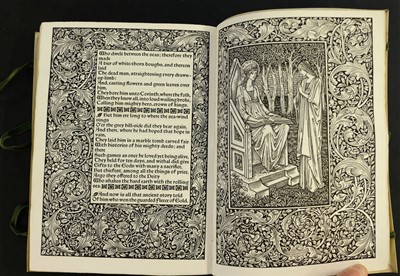 Who dwelt between the seas; therefore they
made
A bier of white-thorn boughs, and thereon
laid
The dead man, straightening every drawn-
up limb;
And, casting flowers and green leaves over
him,
They bore him unto Corinth, where the folk,
When they knew all, into loud wailing broke,
Calling him mighty hero, crown of kings.
But him ere long to where the sea-wind
sings
O'er the grey hill-side did they bear again,
And there, where he had hoped that hope in
vain,
They laid him in a marble tomb carved fair
With histories of his mighty deeds; and
there
Such games as once he loved yet being alive,
They held for ten days, and withal did give
Gifts to the Gods with many a sacrifice,
But chiefest, among all the things of price,
Argo they offered to the Deity
Who shakes the hard earth with the rolling
sea.
And now is all that ancient story told
Of him who won the guarded Fleece of Gold.